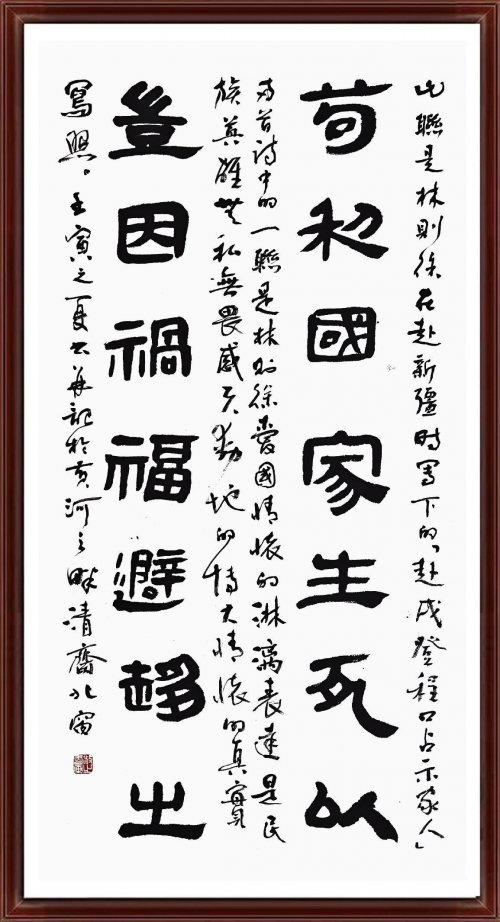 此聯是林則徐在赴新疆時寫下的「赴戍登程口占示家人」
苟利國家生死以
两首詩中的一聯是林則徐愛國情懷的淋漓表達是民
族英雄無私無畏感天動地的博大情懷的真實
豈因禍福避趨之
寫照。壬寅之夏書并記於黄河之畔清齋北窗